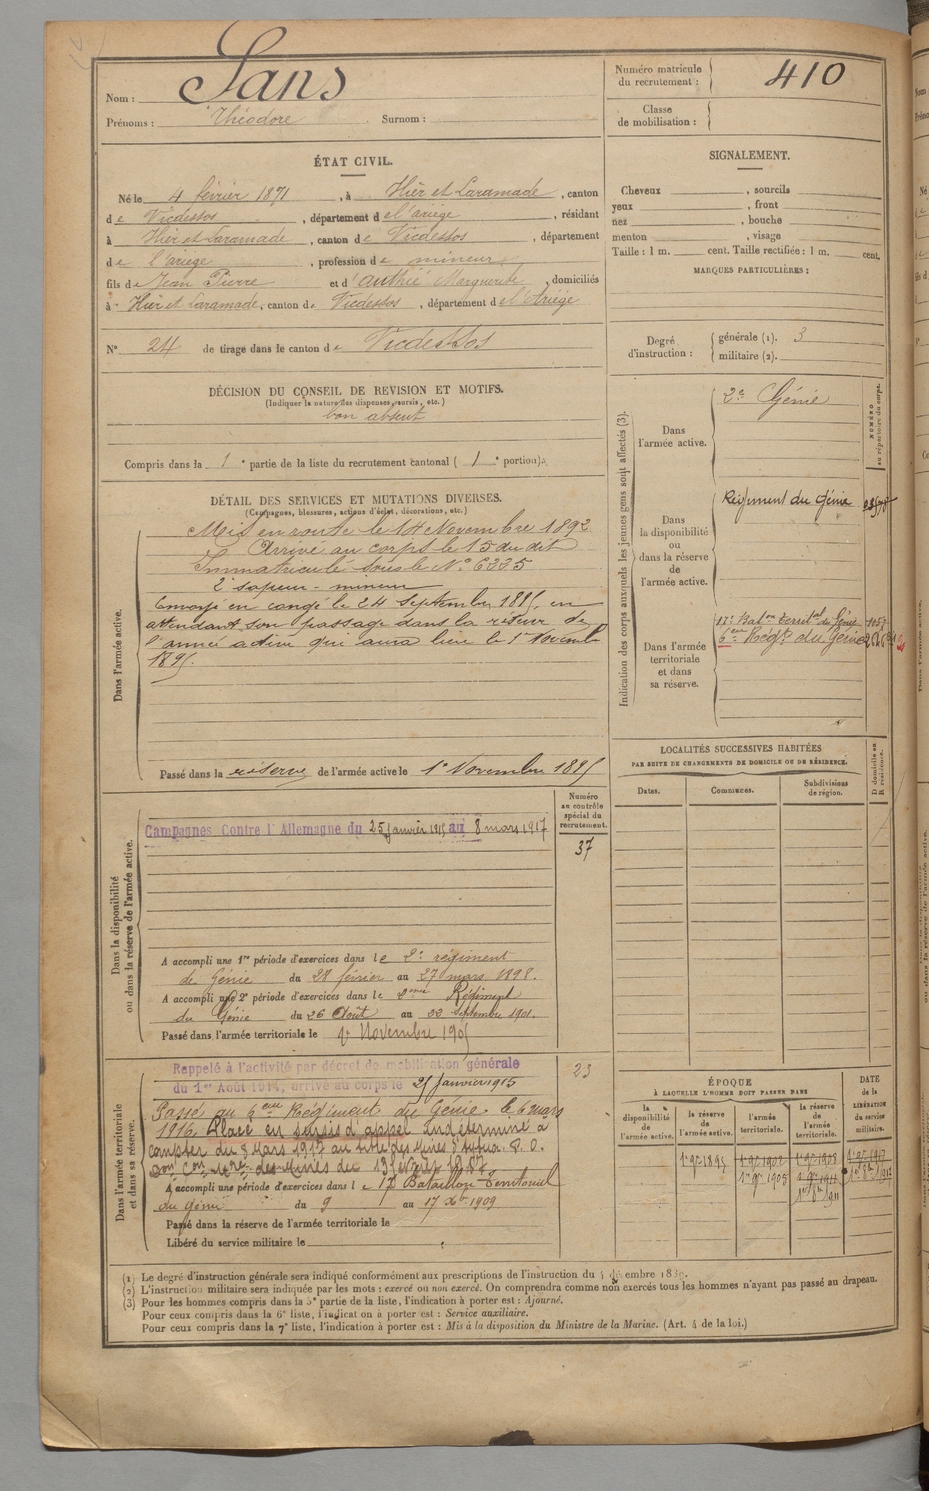 Nom : Sans
Prénoms : Théodore Surnom :
Numéro matricule du recrutement : 410
Classe de mobilisation :
ÉTAT CIVIL.
Né le 4 février 1871, à Hier et Laramade, canton
de Vicdessos, département de l'ariège, résidant
à Hier et Laramade, canton de Vicdessos, département
de l'ariège, profession de mineur
fils de Jean Pierre et d'authié Marguerite, domiciliés
à Hier et Laramade, canton de Vicdessos, département de l'Ariège
N° 24 de tirage dans le canton de Vicdessos
SIGNALEMENT.
Cheveux , sourcils
yeux , front
nez , bouche
menton , visage
Taille : 1 m. cent. Taille rectifiée : 1 m. cent.
MARQUES PARTICULIÈRES :
Degré d'instruction : générale (1). 3
militaire (2).
DÉCISION DU CONSEIL DE REVISION ET MOTIFS.
(Indiquer la nature des dispenses, sursis, etc.)
bon absent
Compris dans la 1e partie de la liste du recrutement cantonal ( 1e portion).
DÉTAIL DES SERVICES ET MUTATIONS DIVERSES.
(Campagnes, blessures, actions d'éclat, décorations, etc.)
Dans l'armée active.
Mis en route le 14 Novembre 1892
Arrivé au corps le 15 du dit
Immatriculé sous le N° 6335
2e sapeur-mineur
Envoyé en congé le 24 Septembre 1895, en
attendant son passage dans la réserve de
l'armée active qui aura lieu le 1er Novembre
1895.
Passé dans la réserve de l'armée active le 1er Novembre 1895
Indication des corps auxquels les jeunes gens sont affectés (3).
NUMÉRO au répertoire du corps.
Dans l'armée active.
2e Génie
Dans la disponibilité ou dans la réserve de l'armée active.
Régiment du Génie
Dans l'armée territoriale et dans sa réserve.
17e Baton Territal du Génie 1057
6eme Régt du Génie
LOCALITÉS SUCCESSIVES HABITÉES
PAR SUITE DE CHANGEMENTS DE DOMICILE OU DE RÉSIDENCE.
Dates. Communes. Subdivisions de région. D domicile ou R résidence.
Dans la disponibilité ou dans la réserve de l'armée active.
Numéro au contrôle spécial du recrutement.
37
Campagnes Contre l'Allemagne du 25 janvier 1915 au 8 mars 1917
A accompli une 1re période d'exercices dans le 2e régiment
de Génie du 28 février au 27 mars 1898.
A accompli une 2e période d'exercices dans le 2eme Régiment
du Génie du 26 Août au 22 Septembre 1901.
Passé dans l'armée territoriale le 1er Novembre 1905
Dans l'armée territoriale et dans sa réserve.
23
Rappelé à l'activité par décret de mobilisation générale
du 1er Août 1914, arrivé au corps le 25 Janvier 1915
Passé au 6eme Régiment du Génie le 6 mars
1916. Placé en sursis d'appel indéterminé à
compter du 8 Mars 1917 au titre des Mines
A accompli une période d'exercices dans le 17e Bataillon Territorial
du Génie du 9 au 17 Xbre 1909
Passé dans la réserve de l'armée territoriale le
Libéré du service militaire le
ÉPOQUE
À LAQUELLE L'HOMME DOIT PASSER DANS
la disponibilité de l'armée active. la réserve de l'armée active. l'armée territoriale. la réserve de l'armée territoriale.
DATE de la LIBÉRATION du service militaire.
(1) Le degré d'instruction générale sera indiqué conformément aux prescriptions de l'instruction du 4 décembre 1889.
(2) L'instruction militaire sera indiquée par les mots : exercé ou non exercé. On comprendra comme non exercés tous les hommes n'ayant pas passé au drapeau.
(3) Pour les hommes compris dans la 5e partie de la liste, l'indication à porter est : Ajourné.
Pour ceux compris dans la 6e liste, l'indication à porter est : Service auxiliaire.
Pour ceux compris dans la 7e liste, l'indication à porter est : Mis à la disposition du Ministre de la Marine. (Art. 4 de la loi.)